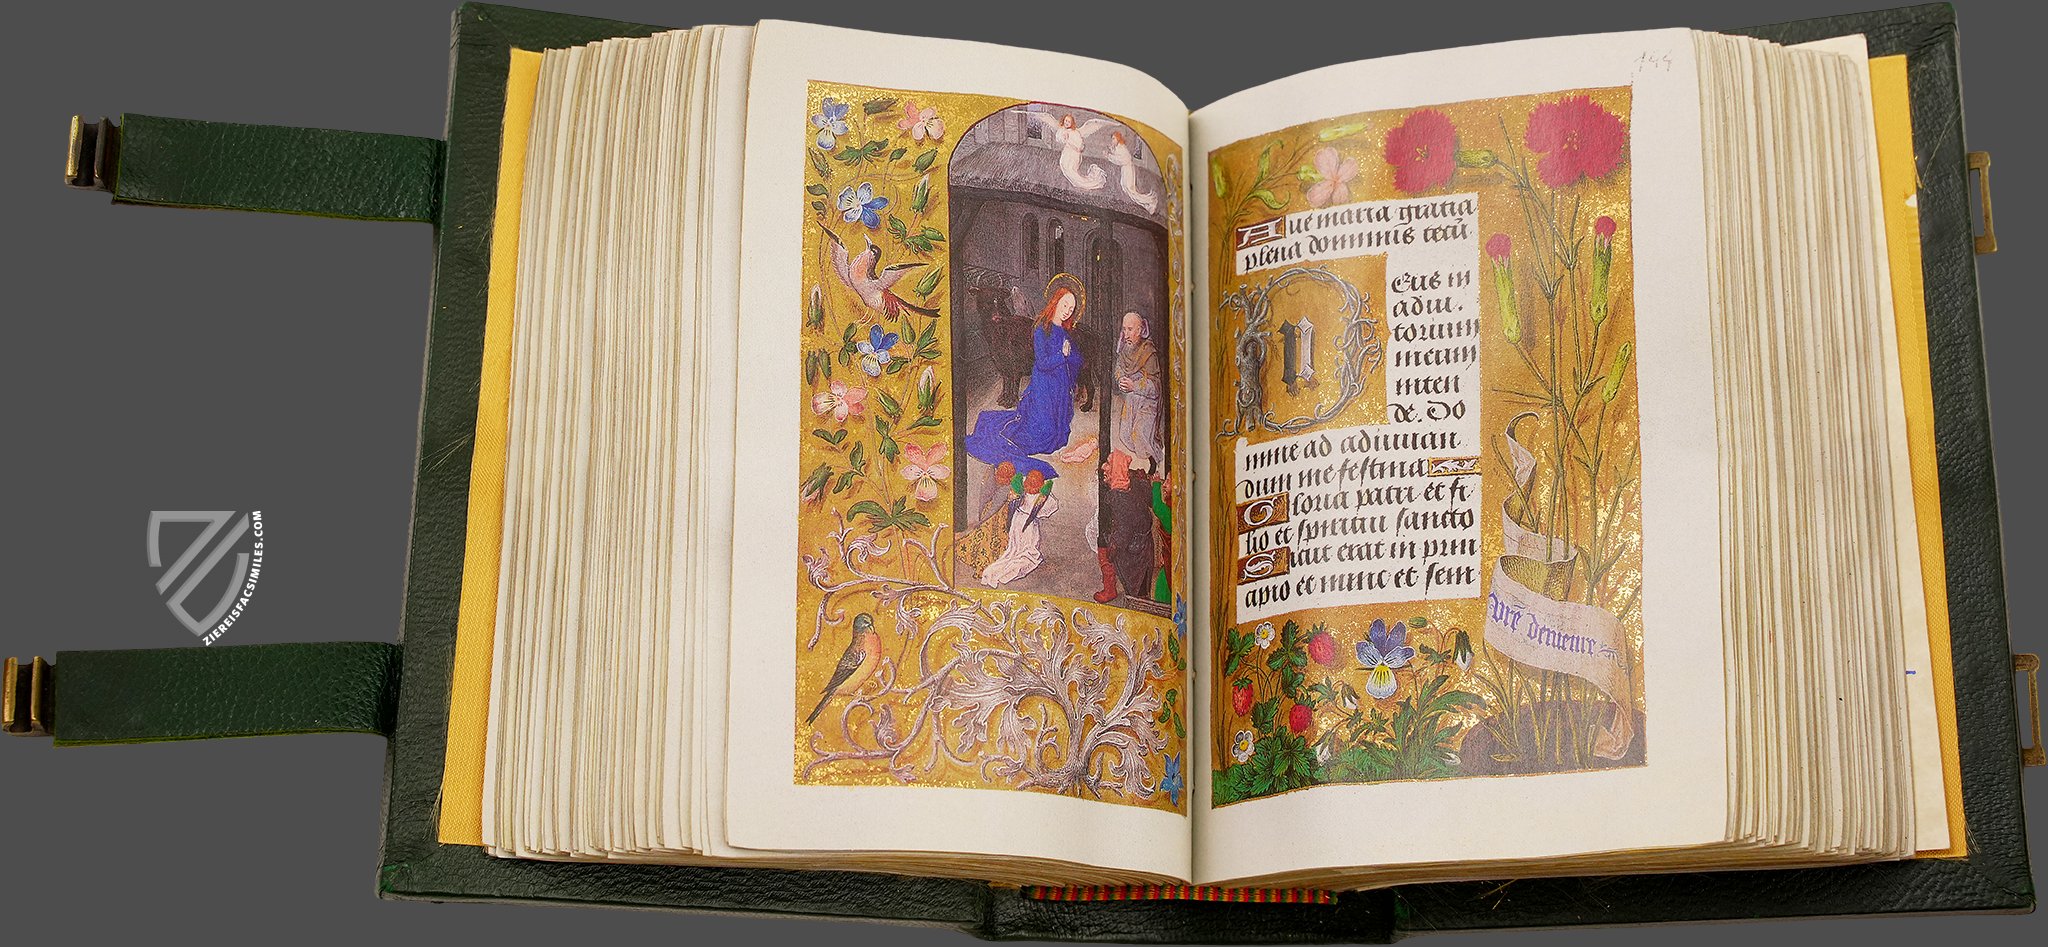 144
Aue maria gratia
plena dominus tecū.
Deus in
adiu.
torium
meum
inten
de. Do
mine ad adiuuan
dum me festina
Gloria patri et fi
lio et spiritui sancto
Sicut erat in prin
apio et nunc et sem
ZIEREISFACSIMILES.COM